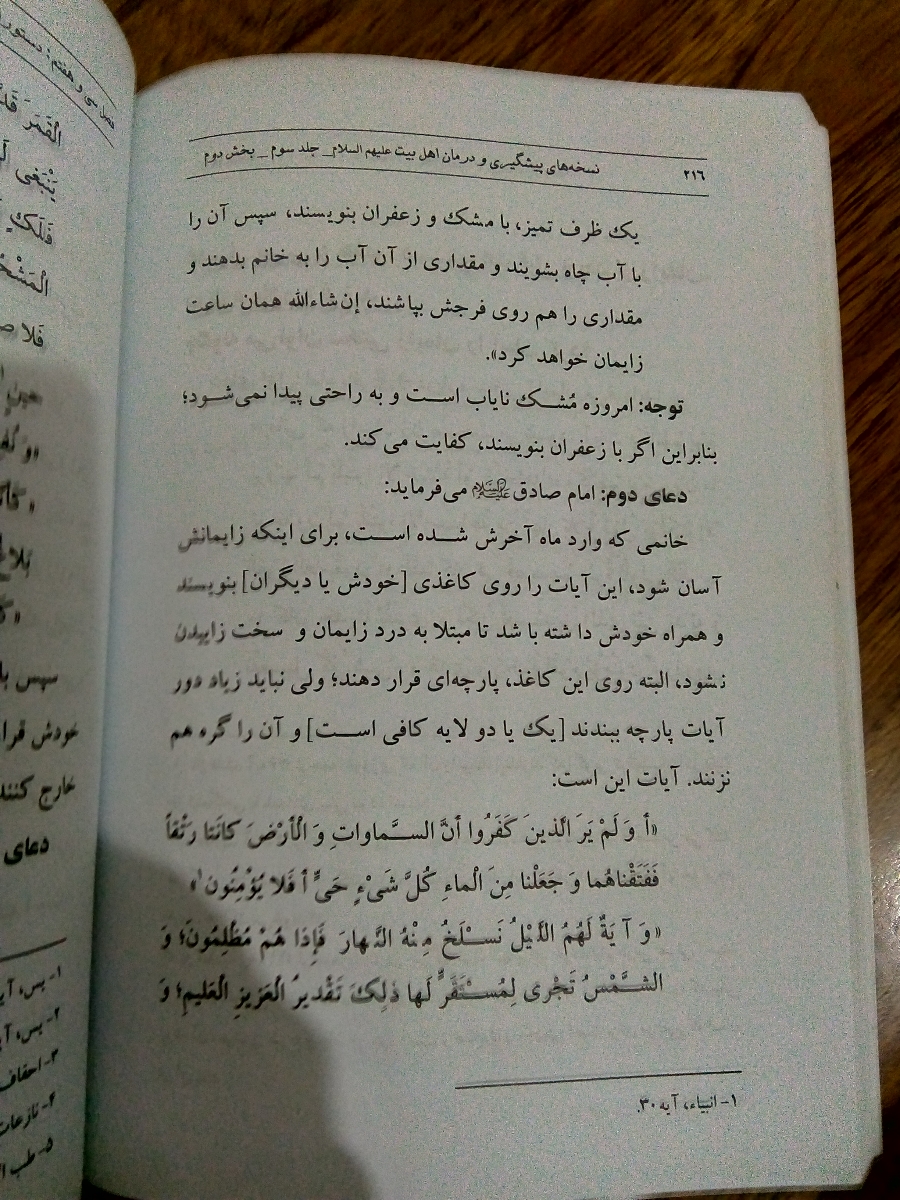 ۲۱۶ نسخه‌های پیشگیری و درمان اهل بیت علیهم السلام_ جلد سوم _ بخش دوم
یک ظرف تمیز، با مشک و زعفران بنویسند، سپس آن را
با آب چاه بشویند و مقداری از آن آب را به خانم بدهند و
مقداری را هم روی فرجش بپاشند، إن‌شاءالله همان ساعت
زایمان خواهد کرد».
توجه: امروزه مُشک نایاب است و به راحتی پیدا نمی‌شود؛
بنابراین اگر با زعفران بنویسند، کفایت می‌کند.
دعای دوم: امام صادق علیه‌السلام می‌فرماید:
خانمی که وارد ماه آخرش شده است، برای اینکه زایمانش
آسان شود، این آیات را روی کاغذی [خودش یا دیگران] بنویسند
و همراه خودش داشته باشد تا مبتلا به درد زایمان و سخت زاییدن
نشود، البته روی این کاغذ، پارچه‌ای قرار دهند؛ ولی نباید زیاد دور
آیات پارچه ببندند [یک یا دو لایه کافی است] و آن را گره هم
نزنند. آیات این است:
«أ وَ لَمْ یَرَ الَّذینَ کَفَرُوا أنَّ السَّماواتِ وَ الْأرْضَ کانَتا رَتْقاً
فَفَتَقْناهُما وَ جَعَلْنا مِنَ الْماءِ کُلَّ شَیْءٍ حَیٍّ أ فَلا یُؤْمِنُون۱»
«وَ آیَةٌ لَهُمُ اللَّیْلُ نَسْلَخُ مِنْهُ النَّهارَ فَإِذا هُمْ مُظْلِمُونَ؛ وَ
الشَّمْسُ تَجْری لِمُسْتَقَرٍّ لَها ذلِکَ تَقْدیرُ الْعَزیزِ الْعَلیمِ؛ وَ
۱- انبیاء، آیه ۳۰.
الْقَمَرَ
یَنْبَغی
فَلَکٍ
فَلا
سپس
خودش
خارج کنند
دعای
۱- یس،
۲- یس،
۳- احقاف
۴- نازعات
۵- طب